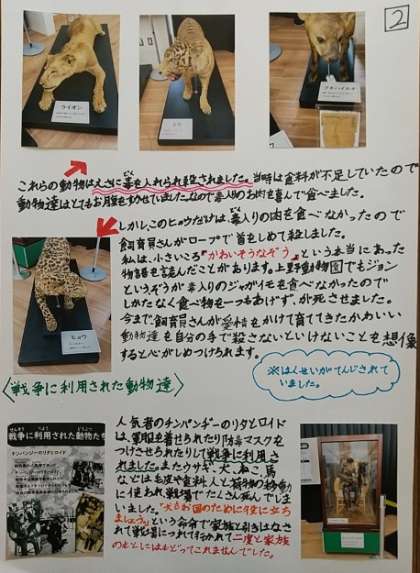 2
ライオン
トラ
ヒョウ
これらの動物はえさに毒を入れられ殺されました。当時は食料が不足していたので
どく
動物達はとてもお腹をすかせていました。なので毒入りのお肉を喜んで食べました。
しかし、このヒョウだけは、毒入りの肉を食べなかったので
飼育員さんがロープで首をしめて殺しました。
私は、小さいころ"かわいそうなぞう"という本当にあった
物語を読んだことがあります。上野動物園でもジョン
というぞうが毒入りのジャガイモを食べなかったので
しかたなく食べ物を一つもあげず、が死させました。
今まで飼育員さんが愛情をかけて育ててきたかわいい
動物達を自分の手で殺さないといけないことを想像
すると心がしめつけられます。
※はくせいがてんじされて
いました。
〈戦争に利用された動物達〉
せんそう りよう どうぶつ
戦争に利用された動物たち
チンパンジーのリタとロイド
人気者のチンパンジーのリタとロイド
は、軍服を着せられたり防毒マスクを
つけさせられたりして戦争に利用さ
れました。またウサギ、犬、ねこ、馬
などは毛皮や食料、人と荷物の移動
に使われ、戦場でたくさん死んでしま
いました。"犬もお国のために役に立ち
ましょう。"という命令で家族と引きはなされ
て戦場につれて行かれて二度と家族
のもとにはもどってこれませんでした。